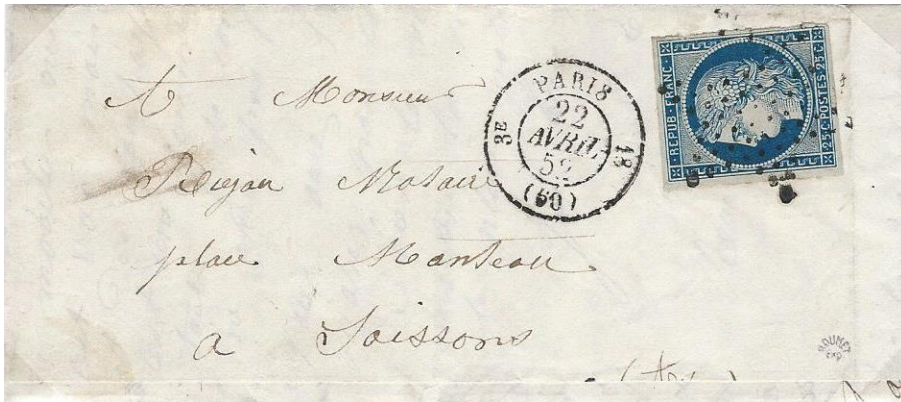 A Monsieur
Notaire
place Manteau
a Soissons
PARIS
3E
22
AVRIL
52
(60)
REPUB. FRANC.
25c. POSTES. 25c.